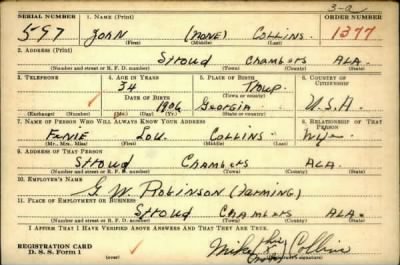 3-a
SERIAL NUMBER 1. NAME (Print) ORDER NUMBER
597 John (None) Collins 1377
(First) (Middle) (Last)
2. ADDRESS (Print)
Stroud Chambers ALA.
(Number and street or R. F. D. number) (Town) (County) (State)
3. TELEPHONE 4. AGE IN YEARS 5. PLACE OF BIRTH 6. COUNTRY OF CITIZENSHIP
34 Troup
DATE OF BIRTH (Town or county)
1906 Georgia U.S.A.
(Exchange) (Number) (Mo.) (Day) (Yr.) (State or country)
7. NAME OF PERSON WHO WILL ALWAYS KNOW YOUR ADDRESS 8. RELATIONSHIP OF THAT PERSON
Lou Collins Wife
(Mr., Mrs., Miss) (First) (Middle) (Last)
9. ADDRESS OF THAT PERSON
Stroud Chambers ALA.
(Number and street or R. F. D. number) (Town) (County) (State)
10. EMPLOYER'S NAME
G. W. Robinson (Farming)
11. PLACE OF EMPLOYMENT OR BUSINESS
Stroud Chambers ALA.
(Number and street or R. F. D. number) (Town) (County) (State)
I AFFIRM THAT I HAVE VERIFIED ABOVE ANSWERS AND THAT THEY ARE TRUE.
REGISTRATION CARD
D. S. S. Form 1 his mark Collins